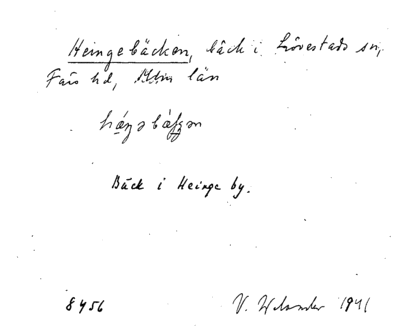 Heingebäcken, bäck i Lövestads sn,
Färs hd, Mlm län
Bäck i Heinge by.
8456 V. Welander 1941